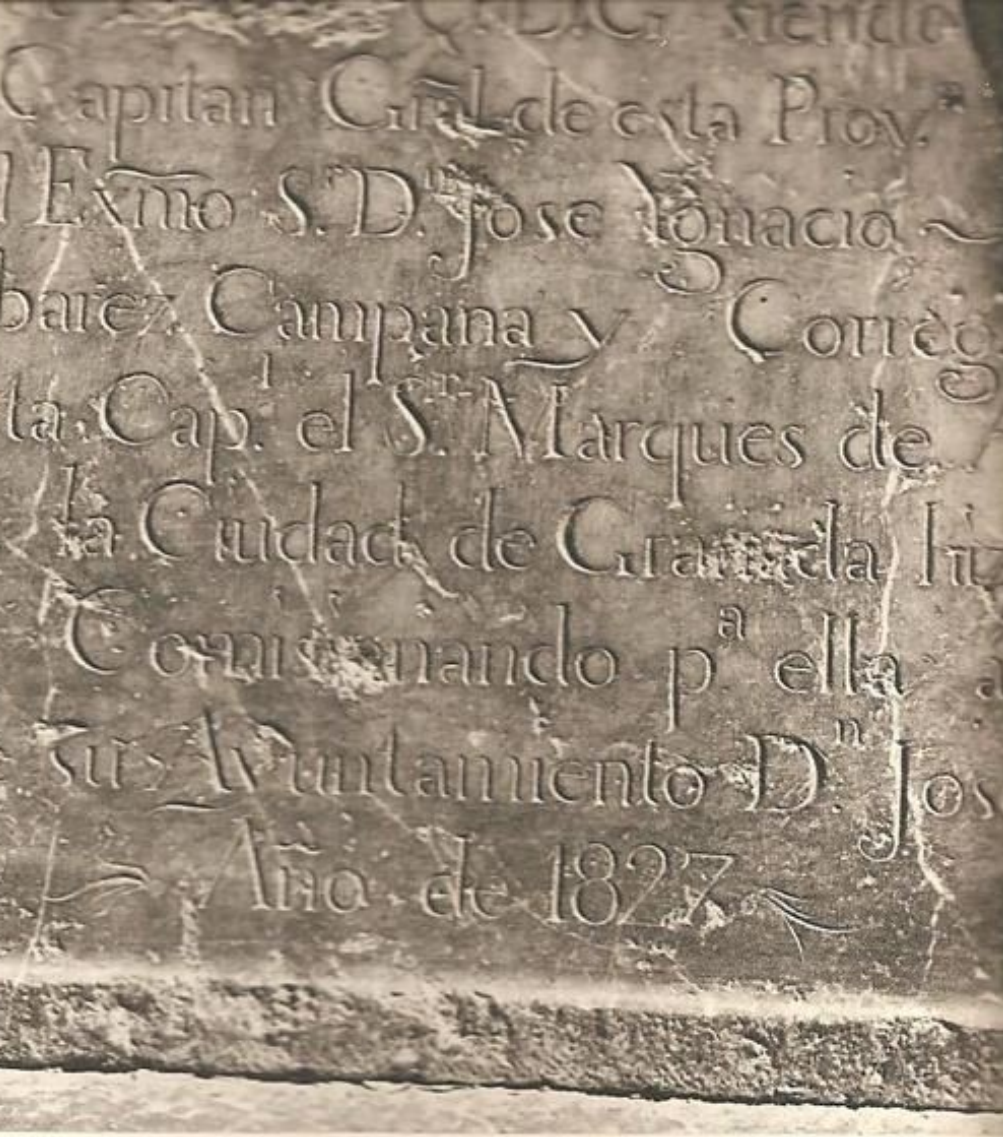 Q.D.G. siendo
Capitan Grãl de esta Prov.ª
l Exm̃o S.r D.n Jose Ygnacio ~
barez Campana y Correg
ta Cap.l el S.r Marques de
la Ciudad de Granada hi
Comisionando p.a ella a
su Ayuntamiento D.n Jos
Año de 1827